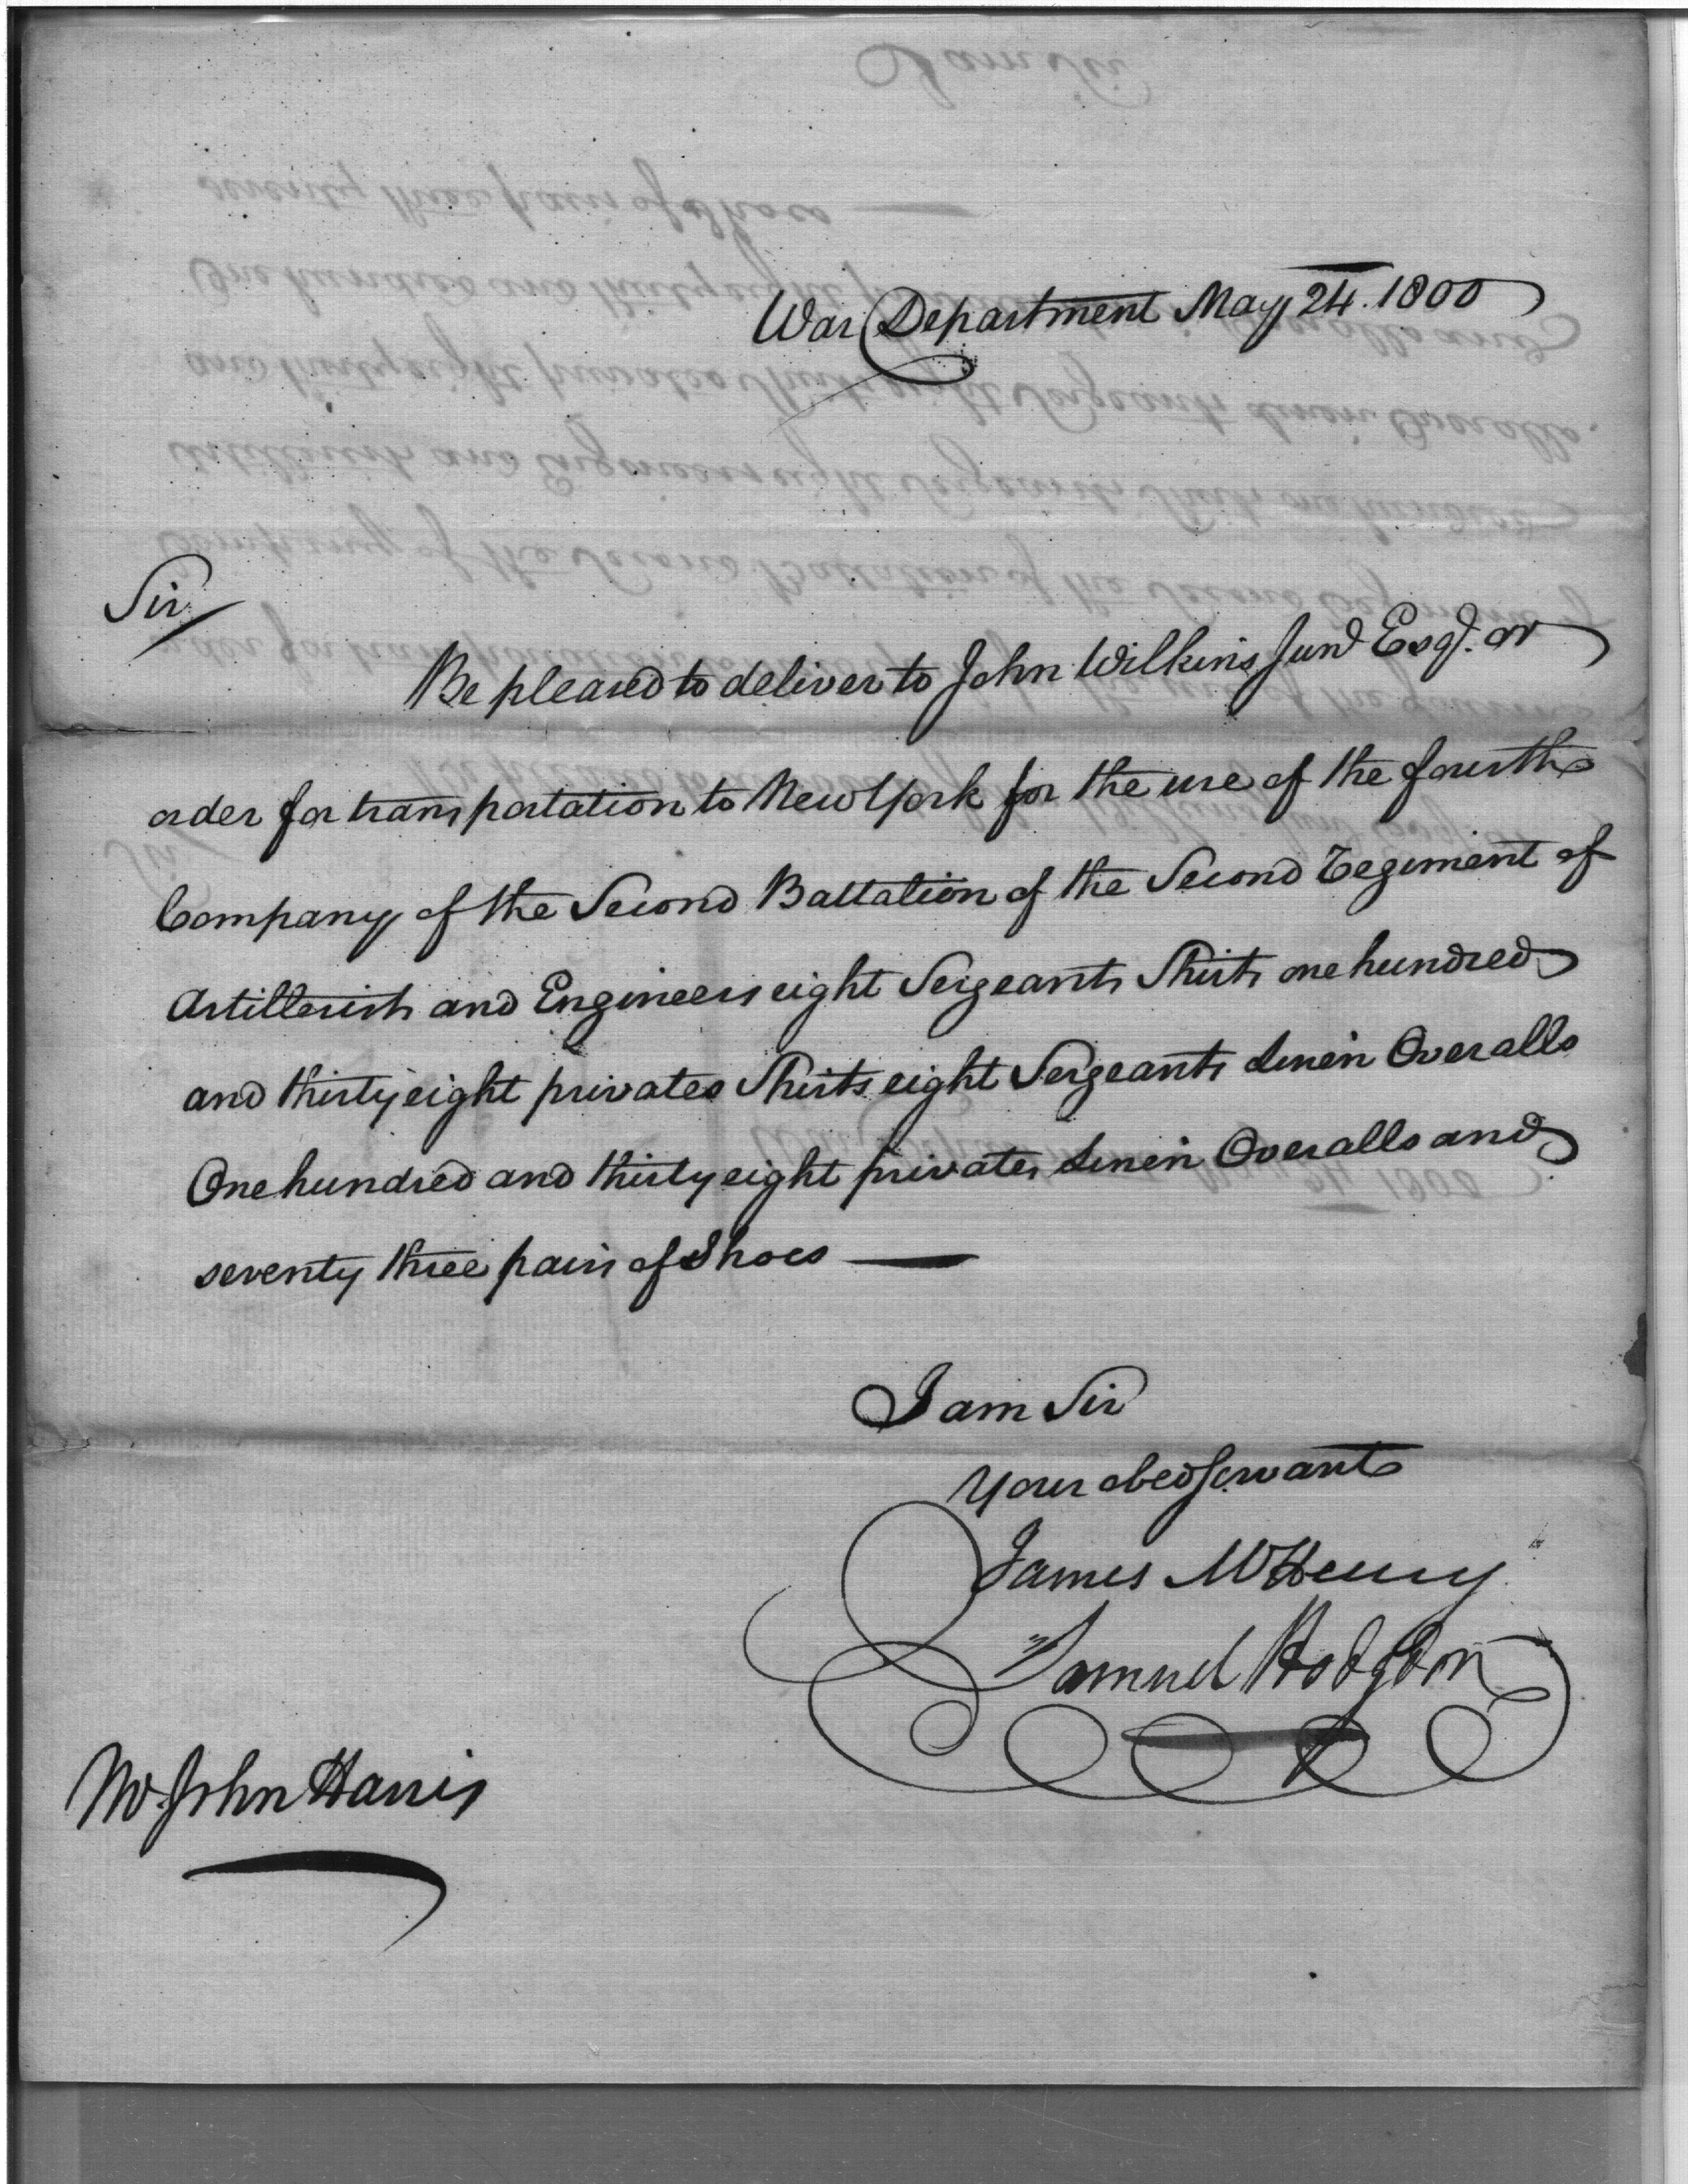 War Department May 24. 1800
Sir
Be pleased to deliver to John Wilkins Junr Esqr. or
order for transportation to New York for the use of the fourth
Company of the Second Battalion of the Second Regiment of
Artillerists and Engineers eight Sergeants Shirts one hundred
and thirty eight privates Shirts eight Sergeants Linen Overalls
One hundred and thirty eight privates Linen Overalls and
seventy three pairs of Shoes —
I am Sir
Your obed Servant
James McHenry
Samuel Hodgdon
Mr. John Harris